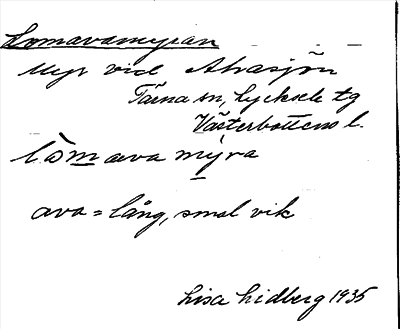 Lomavamyran
Myr vid Ahasjön
Tärna sn, Lycksele tg
Västerbottens l.
lòmava mýra
ava = lång, smal vik
Lisa Lidberg 1935